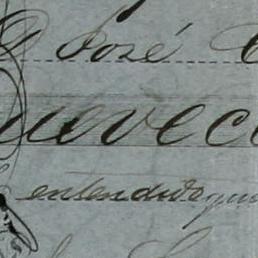 José
uevec
entendido que